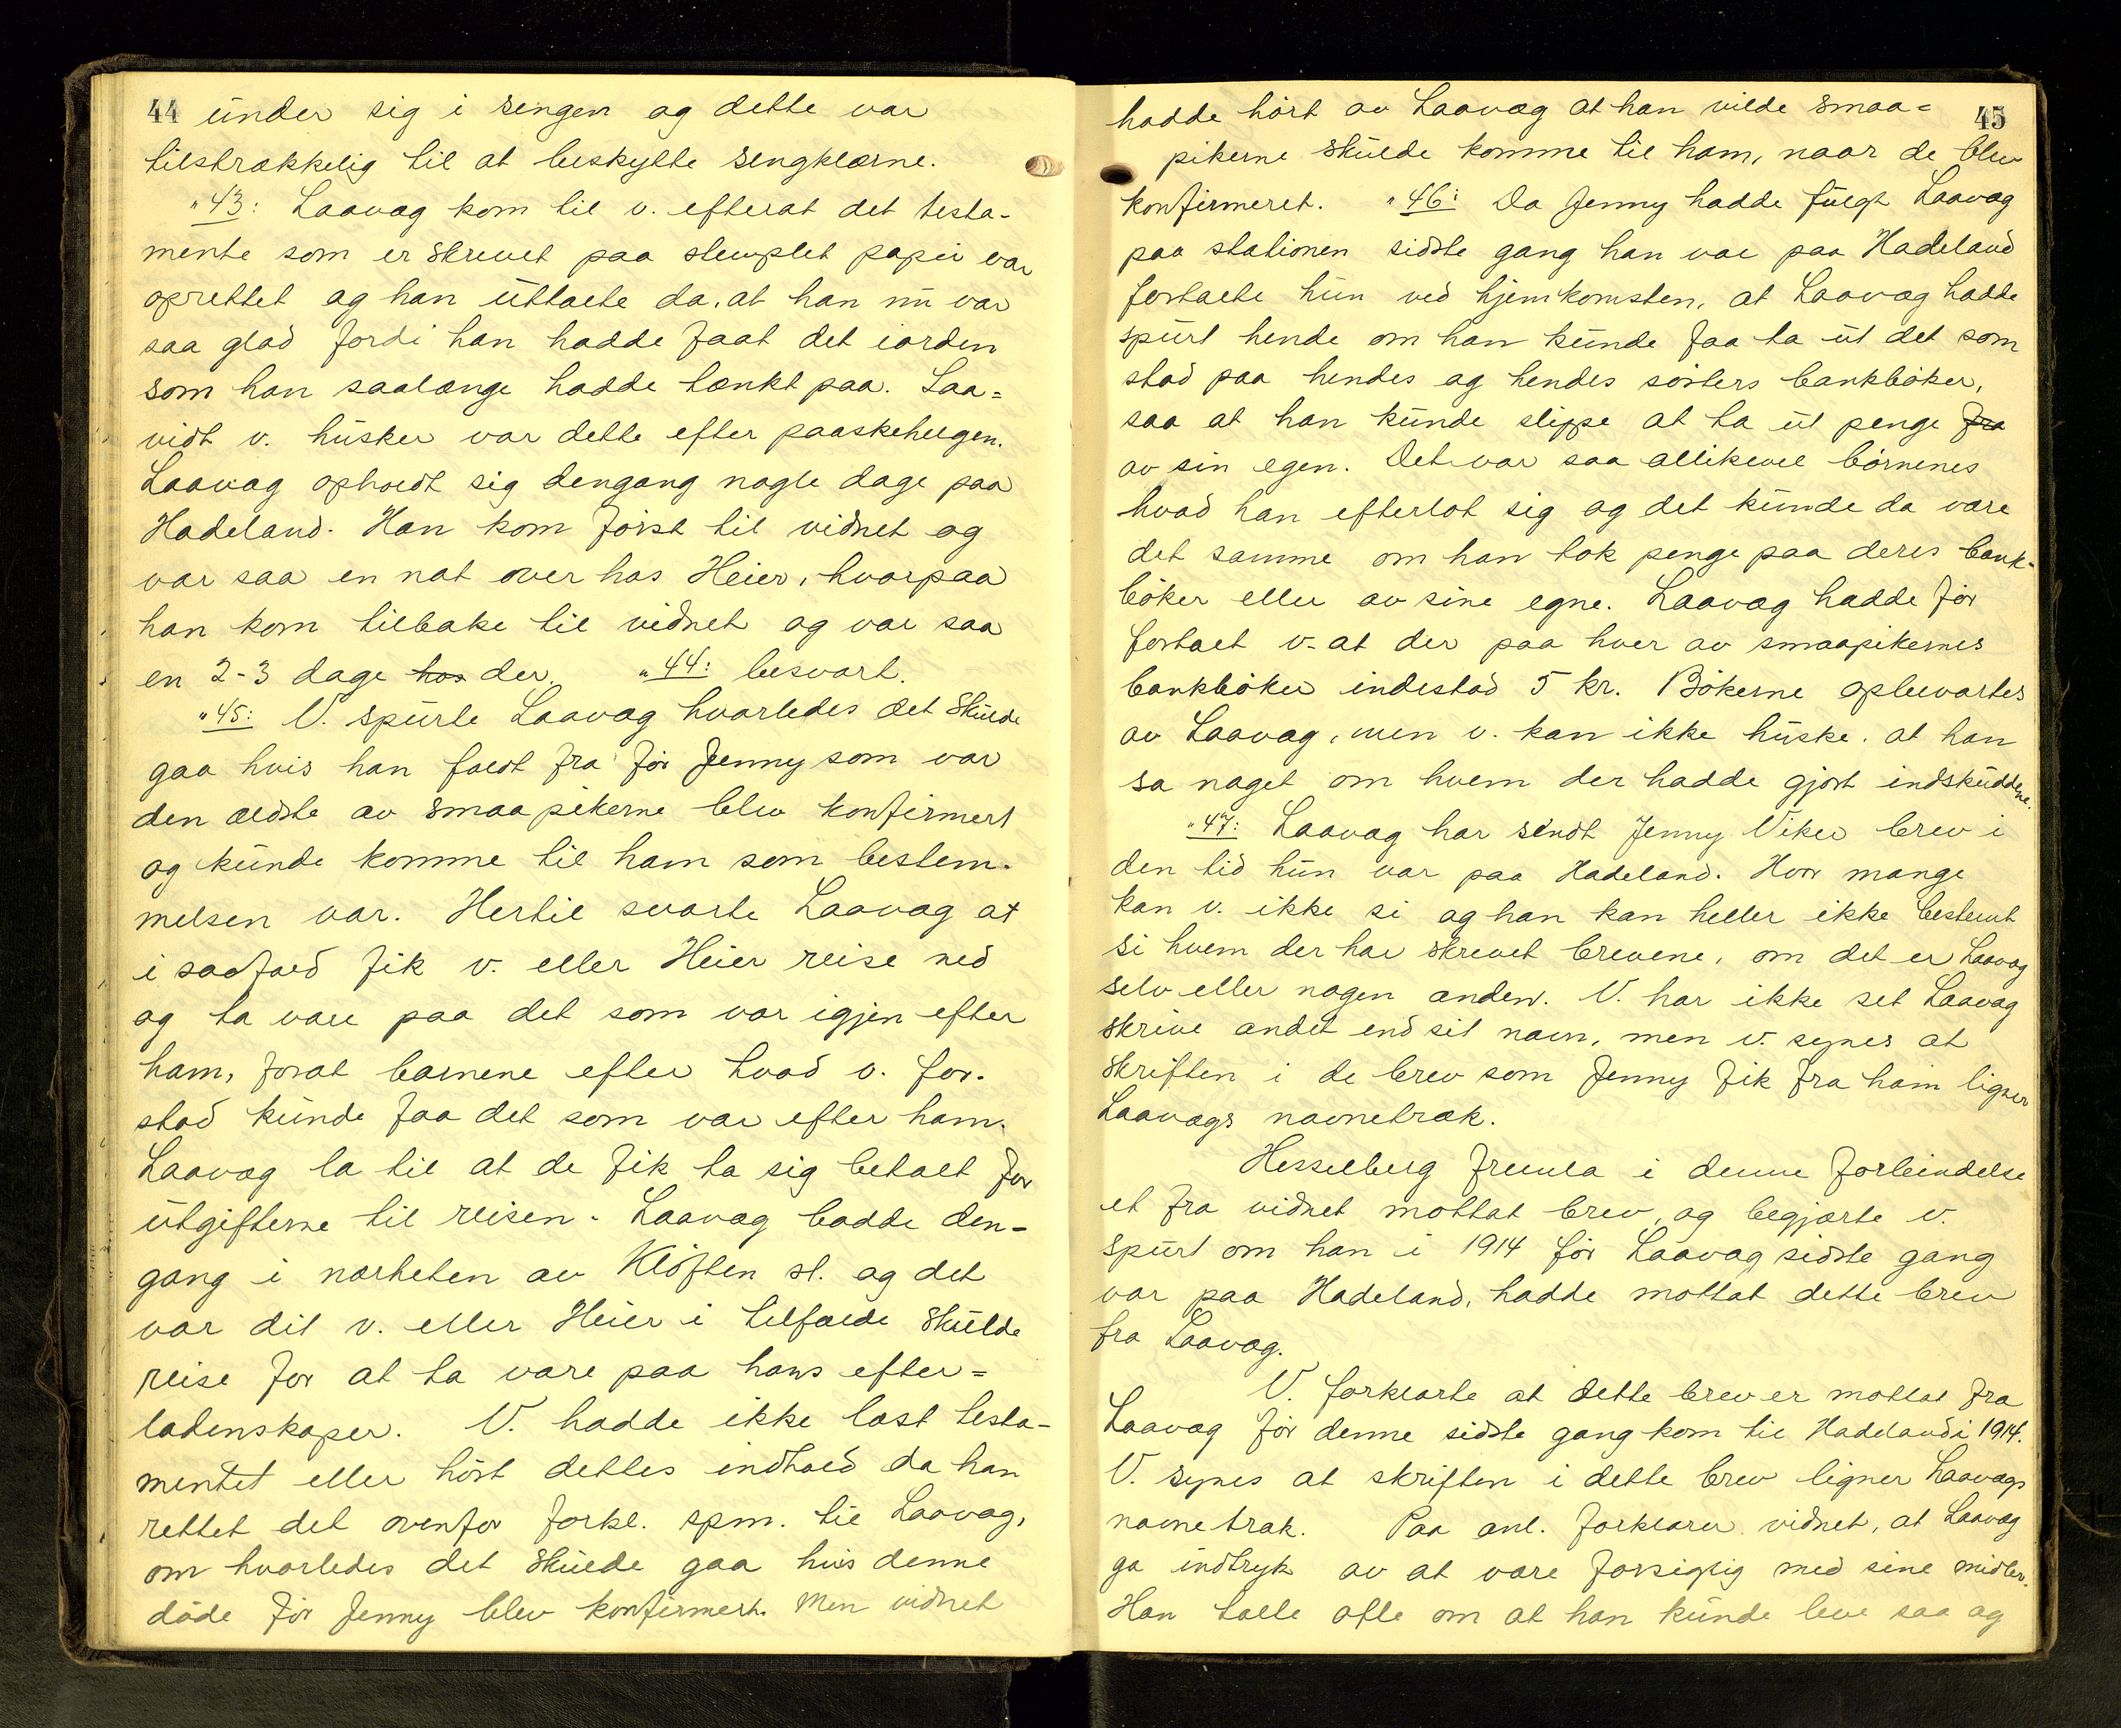 44 under sig i sengen og dette var
tilstrækkelig til at beskytte sengklærne.
"43: Laavag kom til v. efterat det testa-
mente som er skrevet paa stemplet papir var
oprettet og han uttalte da, at han nu var
saa glad fordi han hadde faat det iorden
som han saalænge hadde tænkt paa. Saa=
vidt v. husker var dette efter paaskehelgen.
Laavag opholdt sig dengang nogle dage paa
Hadeland. Han kom først til vidnet og
var saa en nat over hos Heier, hvorpaa
han kom tilbake til vidnet og var saa
en 2-3 dage hos der. "44: besvart.
"45: V. spurte Laavag hvorledes det skulde
gaa hvis han faldt fra før Jenny som var
den ældste av smaapikerne blev konfirmert
og kunde komme til ham som bestem-
melsen var. Hertil svarte Laavag at
i saafald fik v. eller Heier reise ned
og ta vare paa det som var igjen efter
ham, forat barnene efter hvad v. for-
stod kunde faa det som var efter ham.
Laavag la til at de fik ta sig betalt for
utgifterne til reisen. Laavag bodde den-
gang i nærheten av Kløften st. og det
var dit v. eller Heier i tilfælde skulde
reise for at ta vare paa hans efter=
ladenskaper. V. hadde ikke læst testa-
mentet eller hørt dettes indhold da han
rettet det ovenfor forkl. spm. til Laavag,
om hvorledes det skulde gaa hvis denne
døde før Jenny blev konfirmert. Men vidnet
45
hadde hørt av Laavag at han vilde smaa=
pikerne skulde komme til ham, naar de blev
konfirmeret. "46: Da Jenny hadde fulgt Laavag
paa stationen sidste gang han var paa Hadeland
fortalte hun ved hjemkomsten, at Laavag hadde
spurt hende om han kunde faa ta ut det som
stod paa hendes og hendes søsters bankbøker,
saa at han kunde slippe at ta ut penge fra
av sin egen. Det var saa allikevel børnenes
hvad han efterlot sig og det kunde da være
det samme om han tok penge paa deres bank-
bøker eller av sine egne. Laavag hadde før
fortalt v. at der paa hver av smaapikernes
bankbøker indestod 5 kr. Bøkerne opbevartes
av Laavag, men v. kan ikke huske, at han
sa noget om hvem der hadde gjort indskuddene.
"47: Laavag har sendt Jenny Viker brev i
den tid hun var paa Hadeland. Hvor mange
kan v. ikke si og han kan heller ikke bestemt
si hvem der har skrevet brevene, om det er Laavag
selv eller nogen anden. V. har ikke set Laavag
skrive andet end sit navn, men v. synes at
skriften i de brev som Jenny fik fra ham ligner
Laavags navnetræk.
Hesselberg fremla i denne forbindelse
et fra vidnet mottat brev, og begjærte v.
spurt om han i 1914 før Laavag sidste gang
var paa Hadeland, hadde mottat dette brev
fra Laavag.
V. forklarte at dette brev er mottat fra
Laavag før denne sidste gang kom til Hadeland i 1914.
V. synes at skriften i dette brev ligner Laavags
navnetræk. Paa anl. forklarer vidnet, at Laavag
ga indtryk av at være forsigtig med sine midler.
Han talte ofte om at han kunde leve saa og